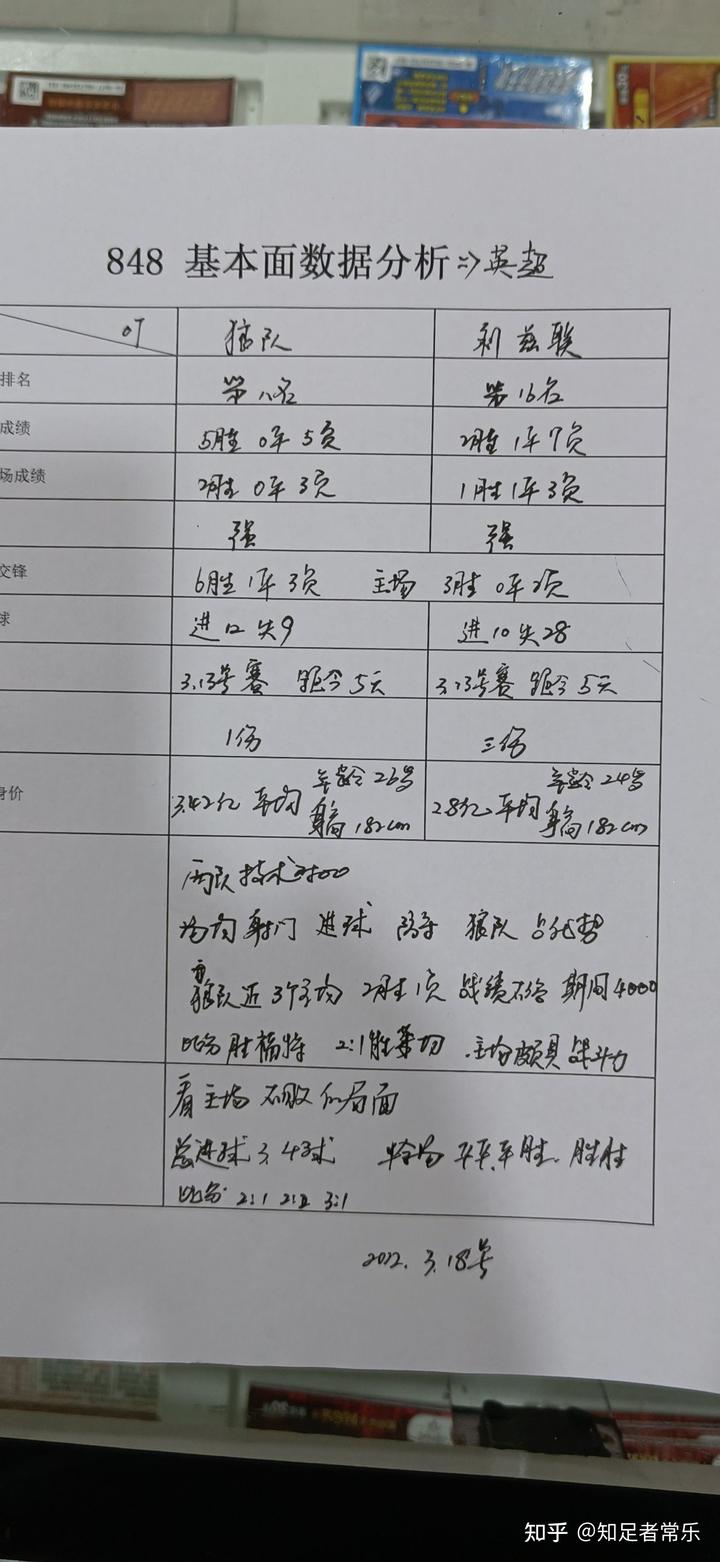 848 基本面数据分析⇒英超
or 狼队 利兹联
排名 第八名 第16名
成绩 5胜 0平 5负 2胜 1平 7负
场成绩 2胜 0平 3负 1胜 1平 3负
强 强
交锋 6胜 1平 3负 主场 3胜 0平 2负
球 进12失9 进10失28
3.13号赛 距今5天 3.13号赛 距今5天
1伤 三伤
身价 3.42亿 平均 年龄26岁 身高182cm 2.8亿 平均 年龄24岁 身高182cm
两队技术
场均射门 进球 防守 狼队占优势
狼队近3个主场 2胜1负 战绩不俗 期间
比分胜福特 2:1胜 主场颇具战斗力
看主场不败的局面
总进球3.4球 半全场 平平.平胜.胜胜
比分 2:1 2:2 3:1
2022.3.18号
知乎 @知足者常乐